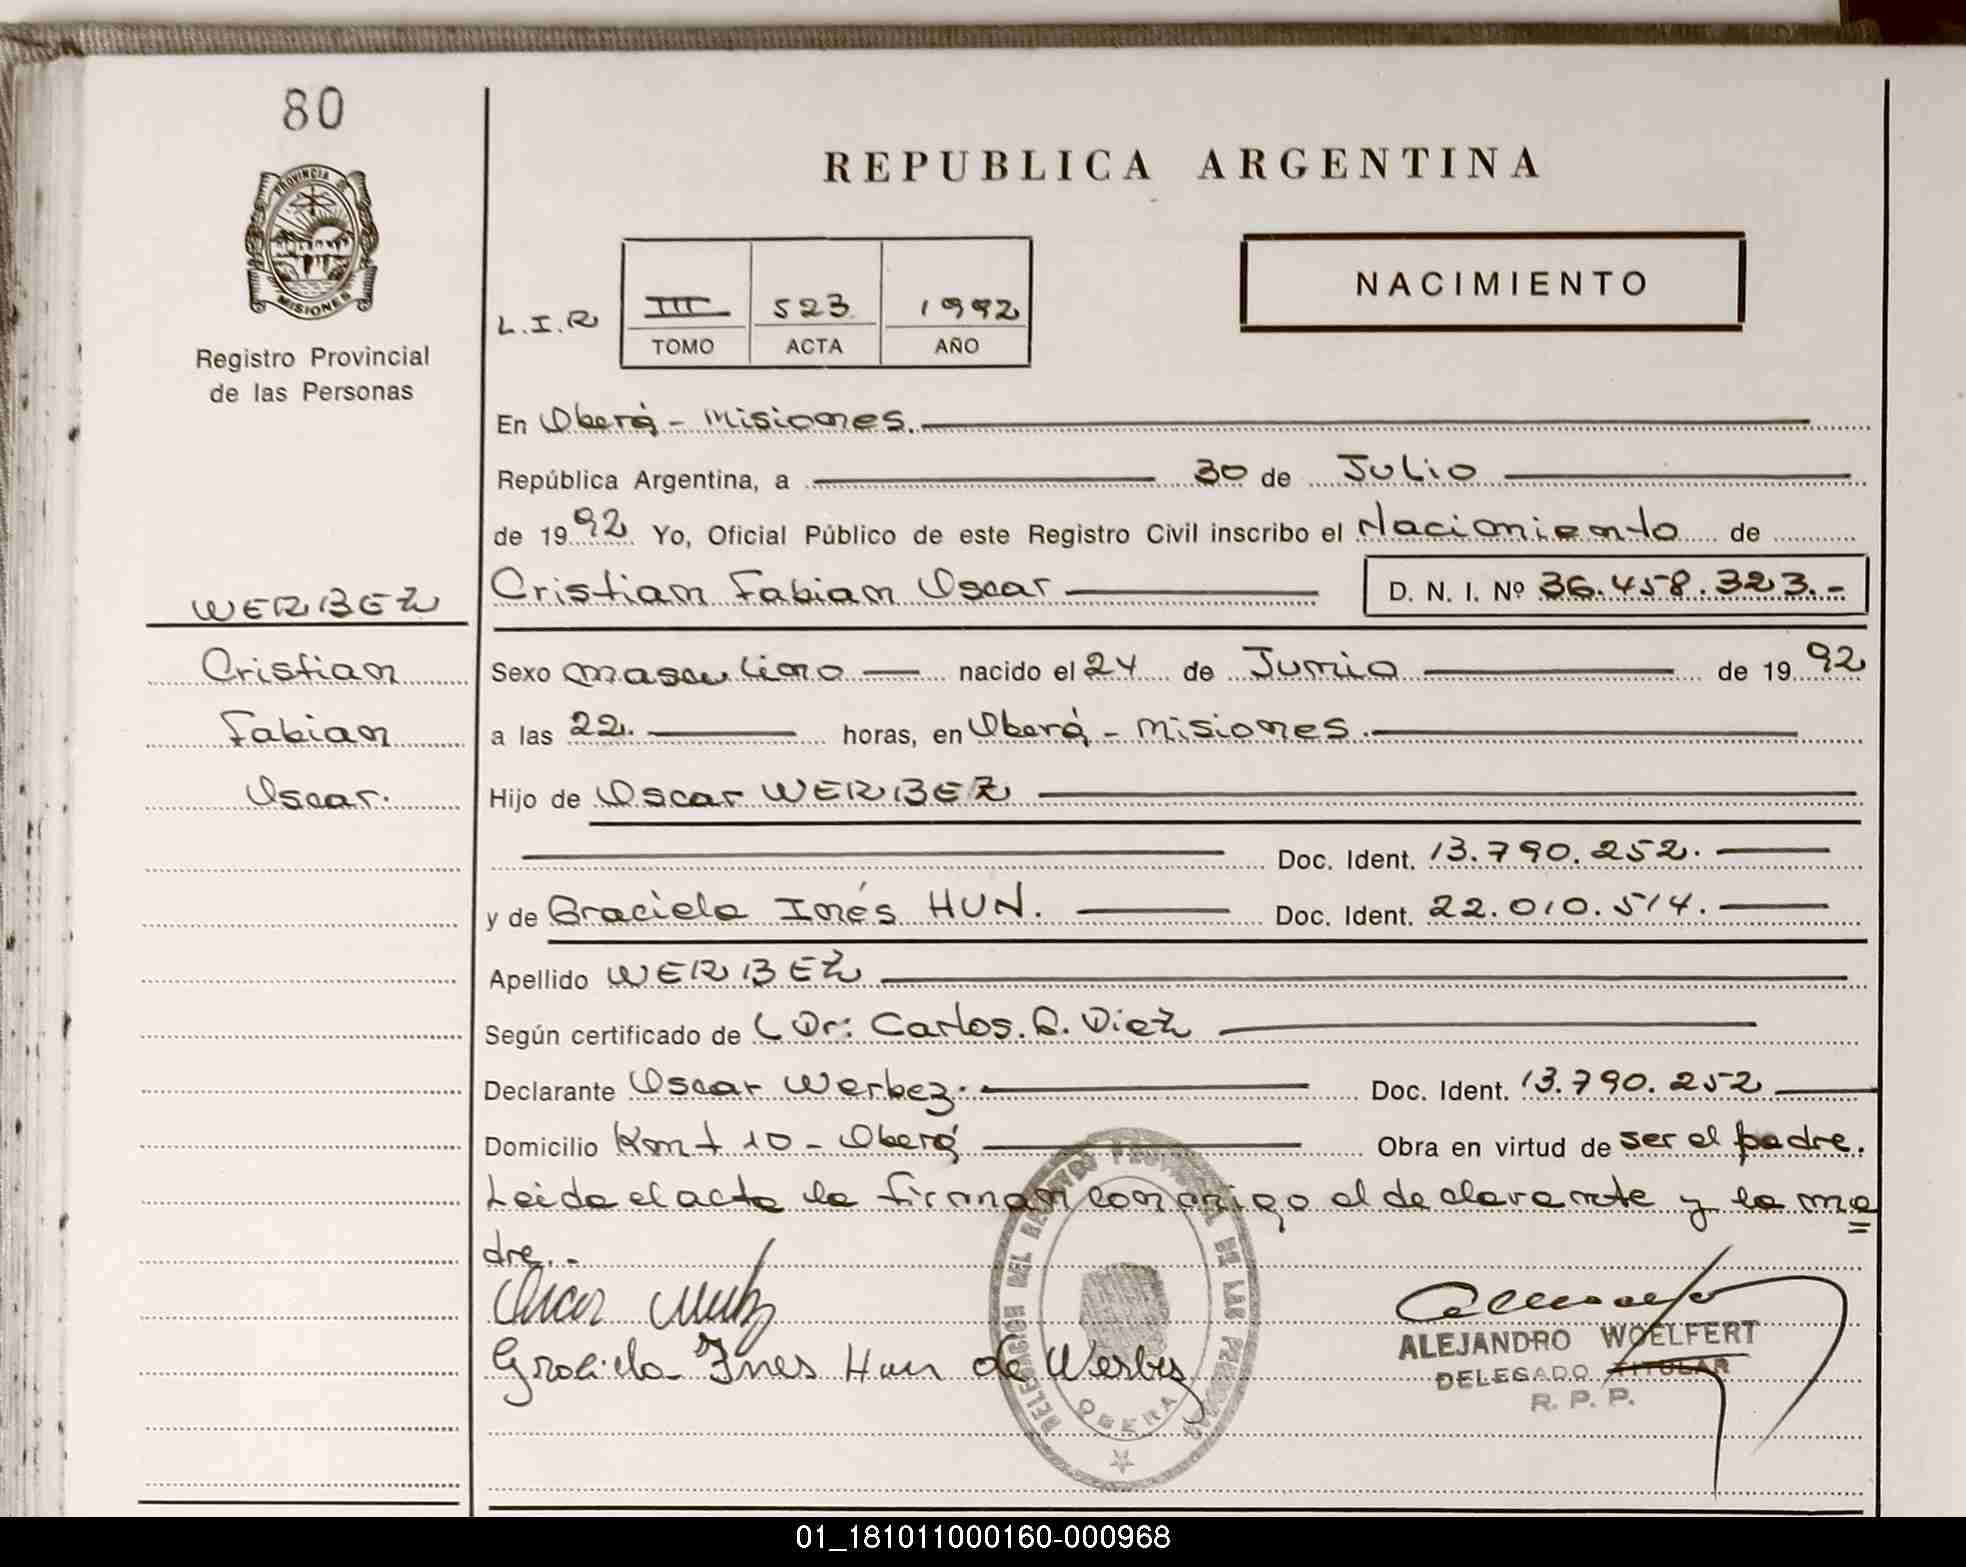 80
PROVINCIA DE
MISIONES
Registro Provincial
de las Personas
REPUBLICA ARGENTINA
NACIMIENTO
L.I.R III 523 1992
TOMO ACTA AÑO
En Oberá - Misiones.
República Argentina, a 30 de Julio
de 1992 Yo, Oficial Público de este Registro Civil inscribo el Nacimiento de
Cristian Fabian Oscar D. N. I. Nº 36.458.323.-
WERBEZ
Cristian
Fabian
Oscar.
Sexo masculino nacido el 24 de Junio de 1992
a las 22. horas, en Oberá - Misiones.
Hijo de Oscar WERBEZ
Doc. Ident. 13.790.252.
y de Graciela Inés HUN. Doc. Ident. 22.010.514.
Apellido WERBEZ
Según certificado de Dr: Carlos. Diez
Declarante Oscar Werbez. Doc. Ident. 13.790.252
Domicilio Km 10 - Oberá Obra en virtud de ser el padre.
Leida el acta la firman conmigo el declarante y la ma
dre..-
Graciela Ines Hun de Werbez
DELEGACION DEL REGISTRO PROVINCIAL DE LAS PERSONAS
OBERA
ALEJANDRO WOELFERT
DELEGADO TITULAR
R. P. P.
01_181011000160-000968